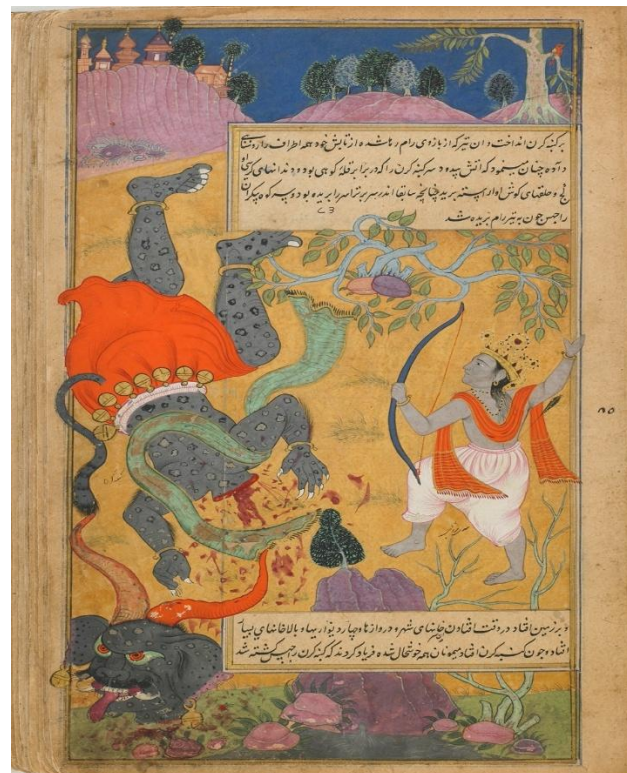 بر کنبه کرن انداخت و ان تیر که از بازوی رام رها شده از تابش خود همه اطراف را روشنی
داده چنان مینمود که اتش بیدود سر کنبه کرن را که در برابر قله کوهی بود و دندانهای
کج و حلقهای کوش او برید چنانچه سابقا اندر سر برتراسر را بریده بود و سر کوه پیکر ان
راجس جون به تیر رام بریده شد
و بر زمین افتاد در وقت افتادن خانهای شهر و دروازها و چاردیواریها و بالاخانهای بسیار
افتاد و جون کنبه کرن افتاد میمونان همه خوشحال شده فریاد کردند که کنبه کرن راجس کشته شد